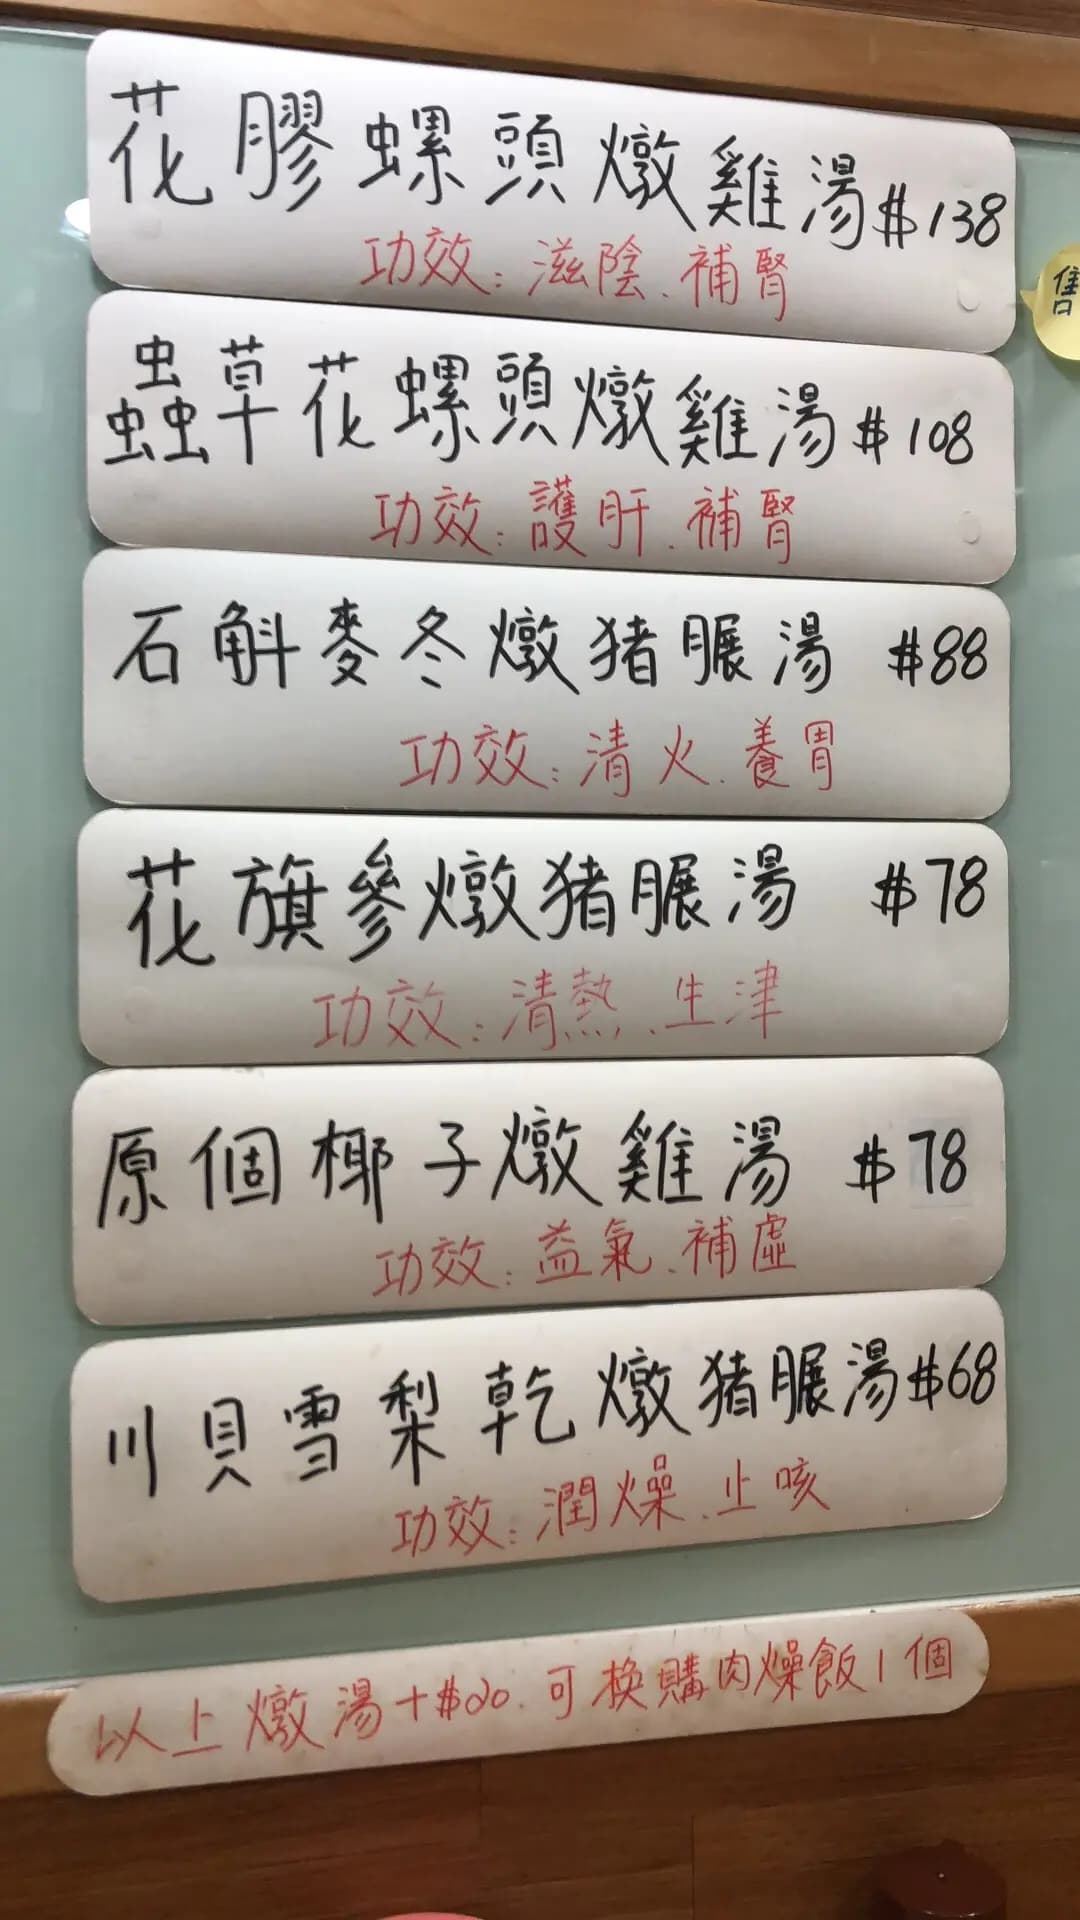 花膠螺頭燉雞湯$138
功效:滋陰、補腎
售
蟲草花螺頭燉雞湯$108
功效:護肝、補腎
石斛麥冬燉猪𦟌湯 $88
功效:清火、養胃
花旗參燉猪𦟌湯 $78
功效:清熱、生津
原個椰子燉雞湯 $78
功效:益氣、補虛
川貝雪梨乾燉猪𦟌湯$68
功效:潤燥、止咳
以上燉湯+$20.可換購肉燥飯1個